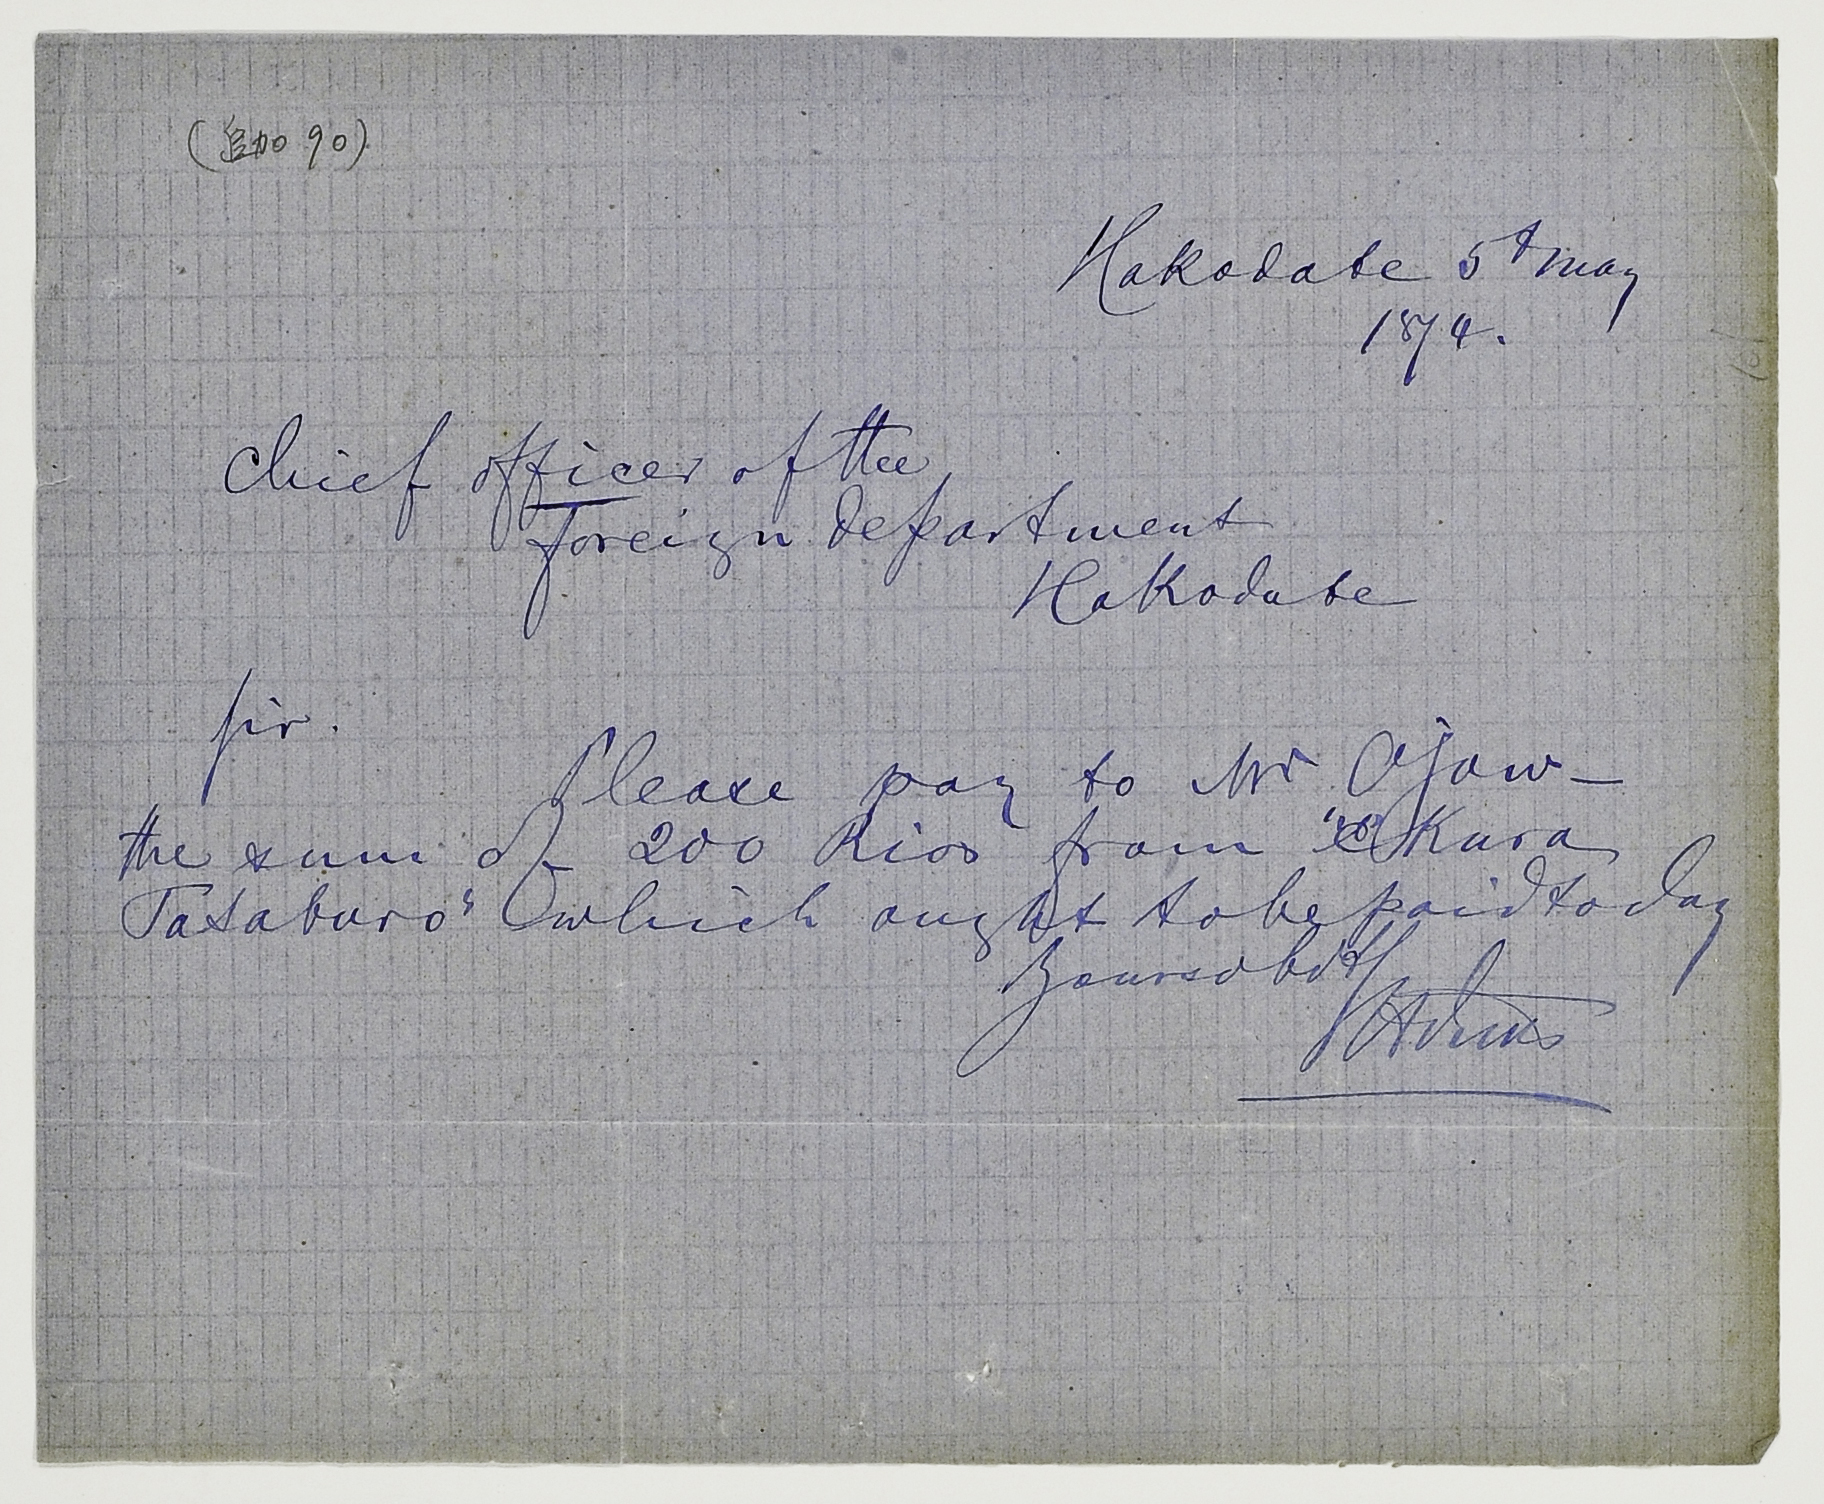 (追加 90)
Hakodate 5th May
1874.
Chief officer of the
foreign department
Hakodate
Sir.
Please pay to Mr Ojaw—
the sum of 200 Rios from "Okura
Tasaburo" which ought to be paid today
Yours obdt